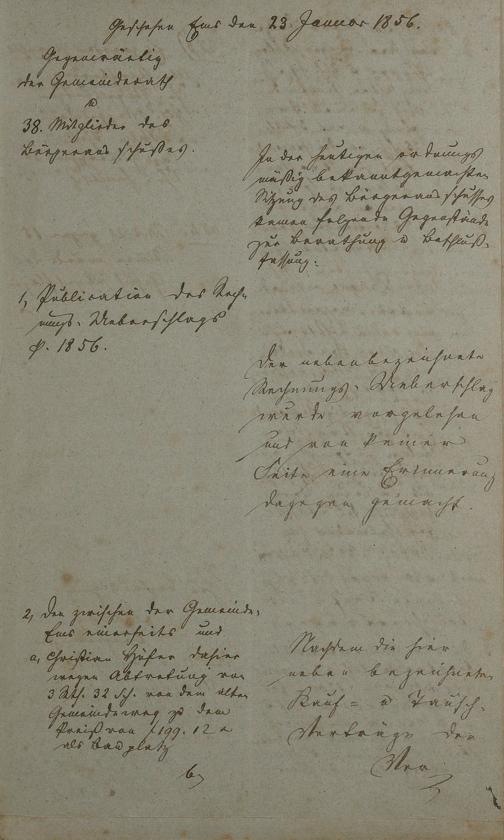 Geschehen Ems den 23 Januar 1856.
Gegenwärtig
der Gemeinderath
u
38. Mitglieder des
Bürgerausschußes.
In der heutigen ordnungs
mäßig bekanntgemachten
Sitzung des Bürgerausschusses
kamen folgende Gegenstände
zur Berathung u Beschluß-
fassung:
1, Publication des Rech-
nungs-Ueberschlags
p. 1856.
Der nebenbezeichnete
Rechnungs-Ueberschlag
wurde vorgelesen
und von keiner
Seite eine Erinnerung
dagegen gemacht.
2, Den zwischen der Gemeinde
Ems einerseits und
a, Christian Höfer dahier
wegen Abtretung von
3 Rth. 32 Sch. von dem alten
Gemeindeweg zu dem
Preiß von f 199. 12
als Bauplatz
b,
Nachdem die hier
neben bezeichneten
Kauf- u Tausch-
Verträge der
Ver